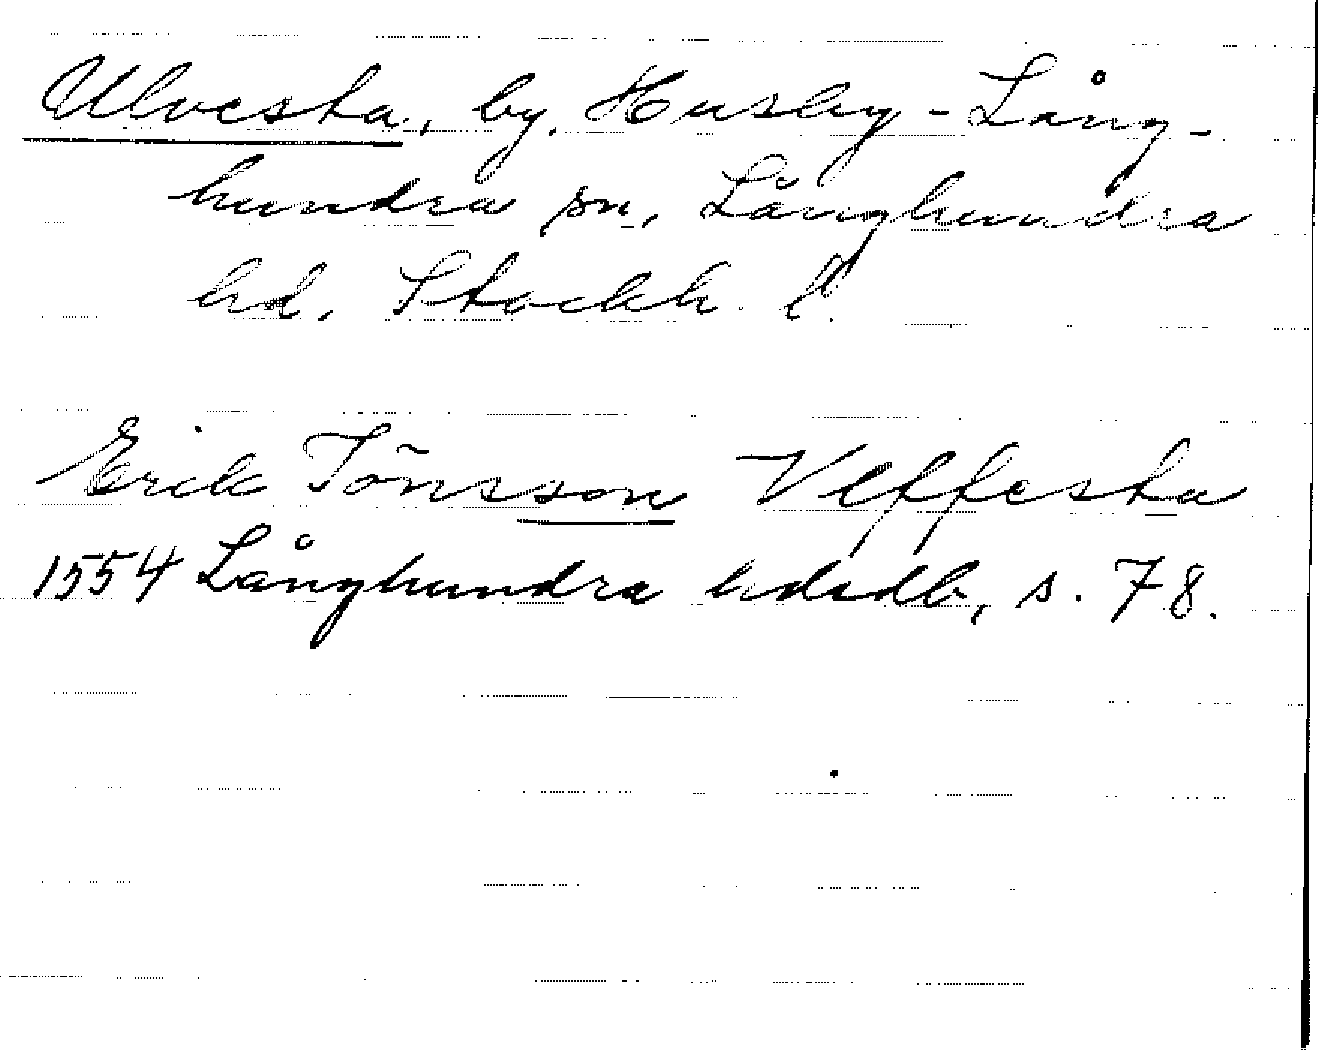 Ulvesta, by, Husby-Lång-
hundra sn, Långhundra
hd, Stockh. l.
Erik Jönsson Vlffesta
1554 Långhundra hdsdb, s. 78.